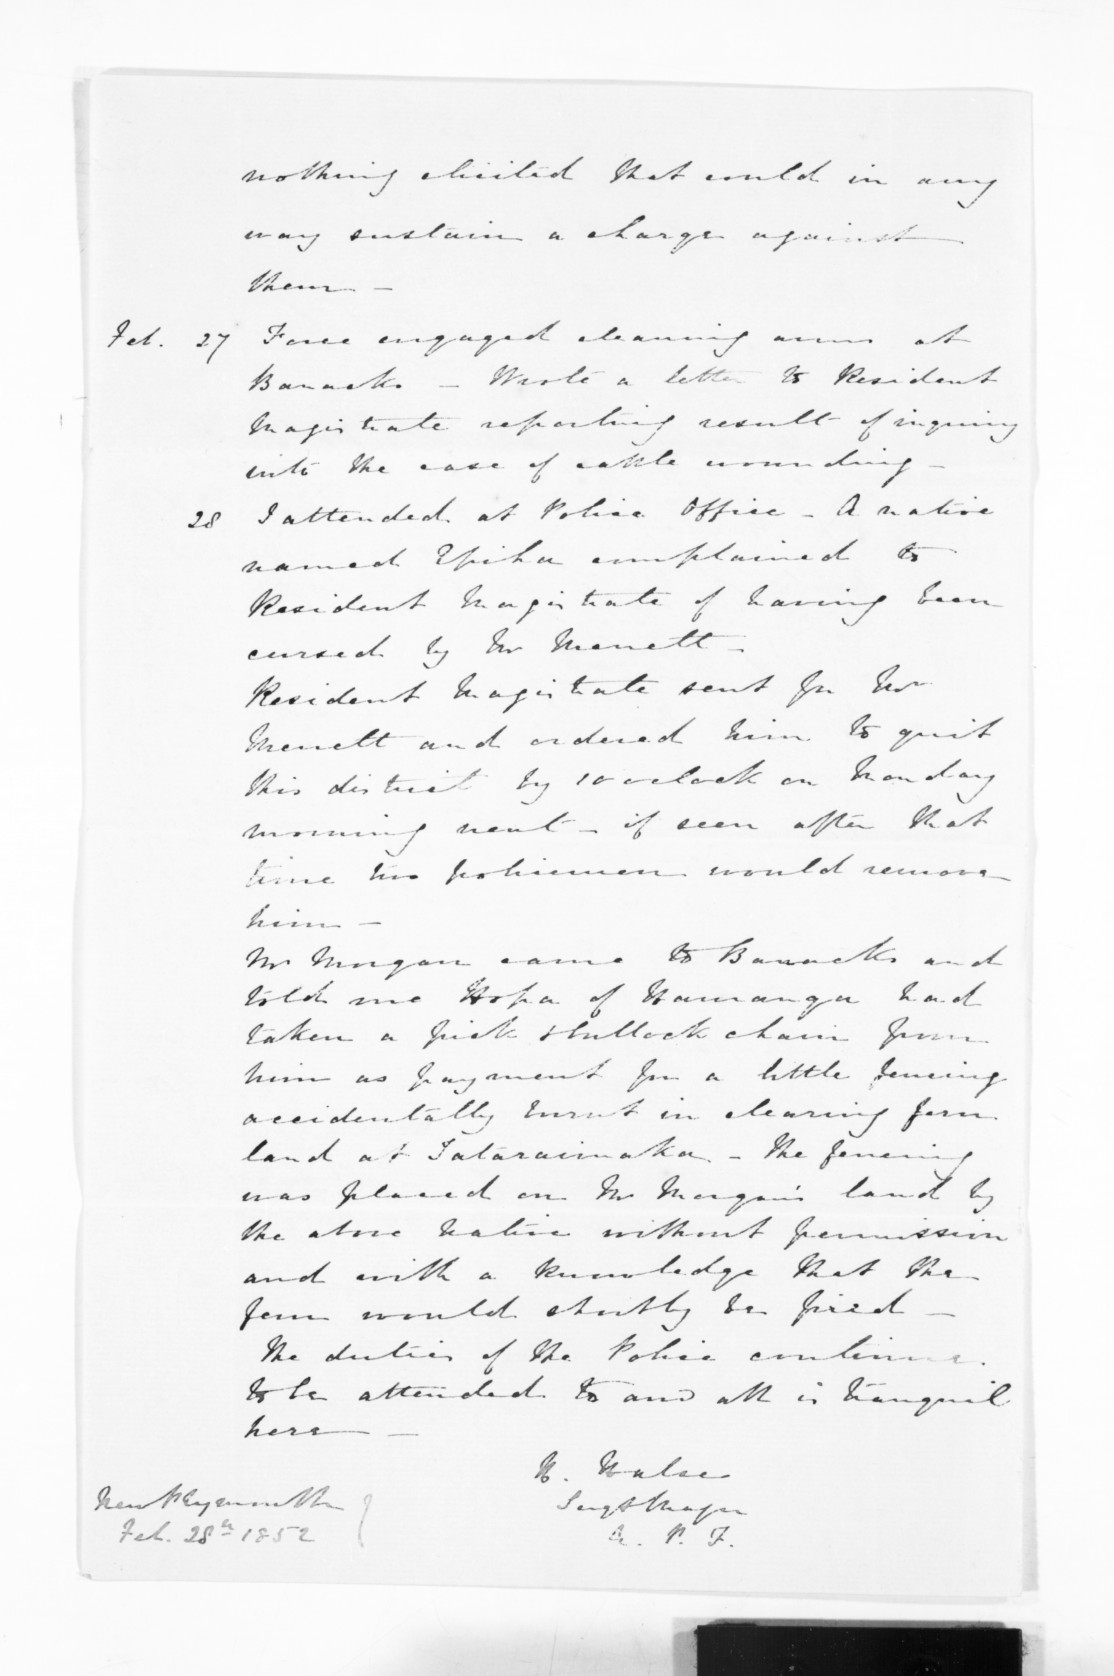 nothing elicited that could in any
way sustain a charge against
them —
Feb. 27 Force engaged cleaning arms at
Barracks — Wrote a letter to Resident
Magistrate reporting result of inquiry
into the case of cattle wounding —
28 I attended at Police Office — A native
named Epiha complained to
Resident Magistrate of having been
cursed by Mr Merrett —
Resident Magistrate sent for Mr
Merrett and ordered him to quit
this district by 10 oclock on Monday
morning next — if seen after that
time two policemen would remove
him —
Mr Morgan came to Barracks and
told me Hopa of Hauranga had
taken a pick & bullock chain from
him as payment for a little fencing
accidentally burnt in clearing fern
land at Tataraimaka — The fencing
was placed on Mr Morgan's land by
the above native without permission
and with a knowledge that the
fern would shortly be fired —
The duties of the Police continue
to be attended to and all is tranquil
here —
H. Halse
Sergt Major
A. P. F.
New Plymouth
Feb. 28th 1852